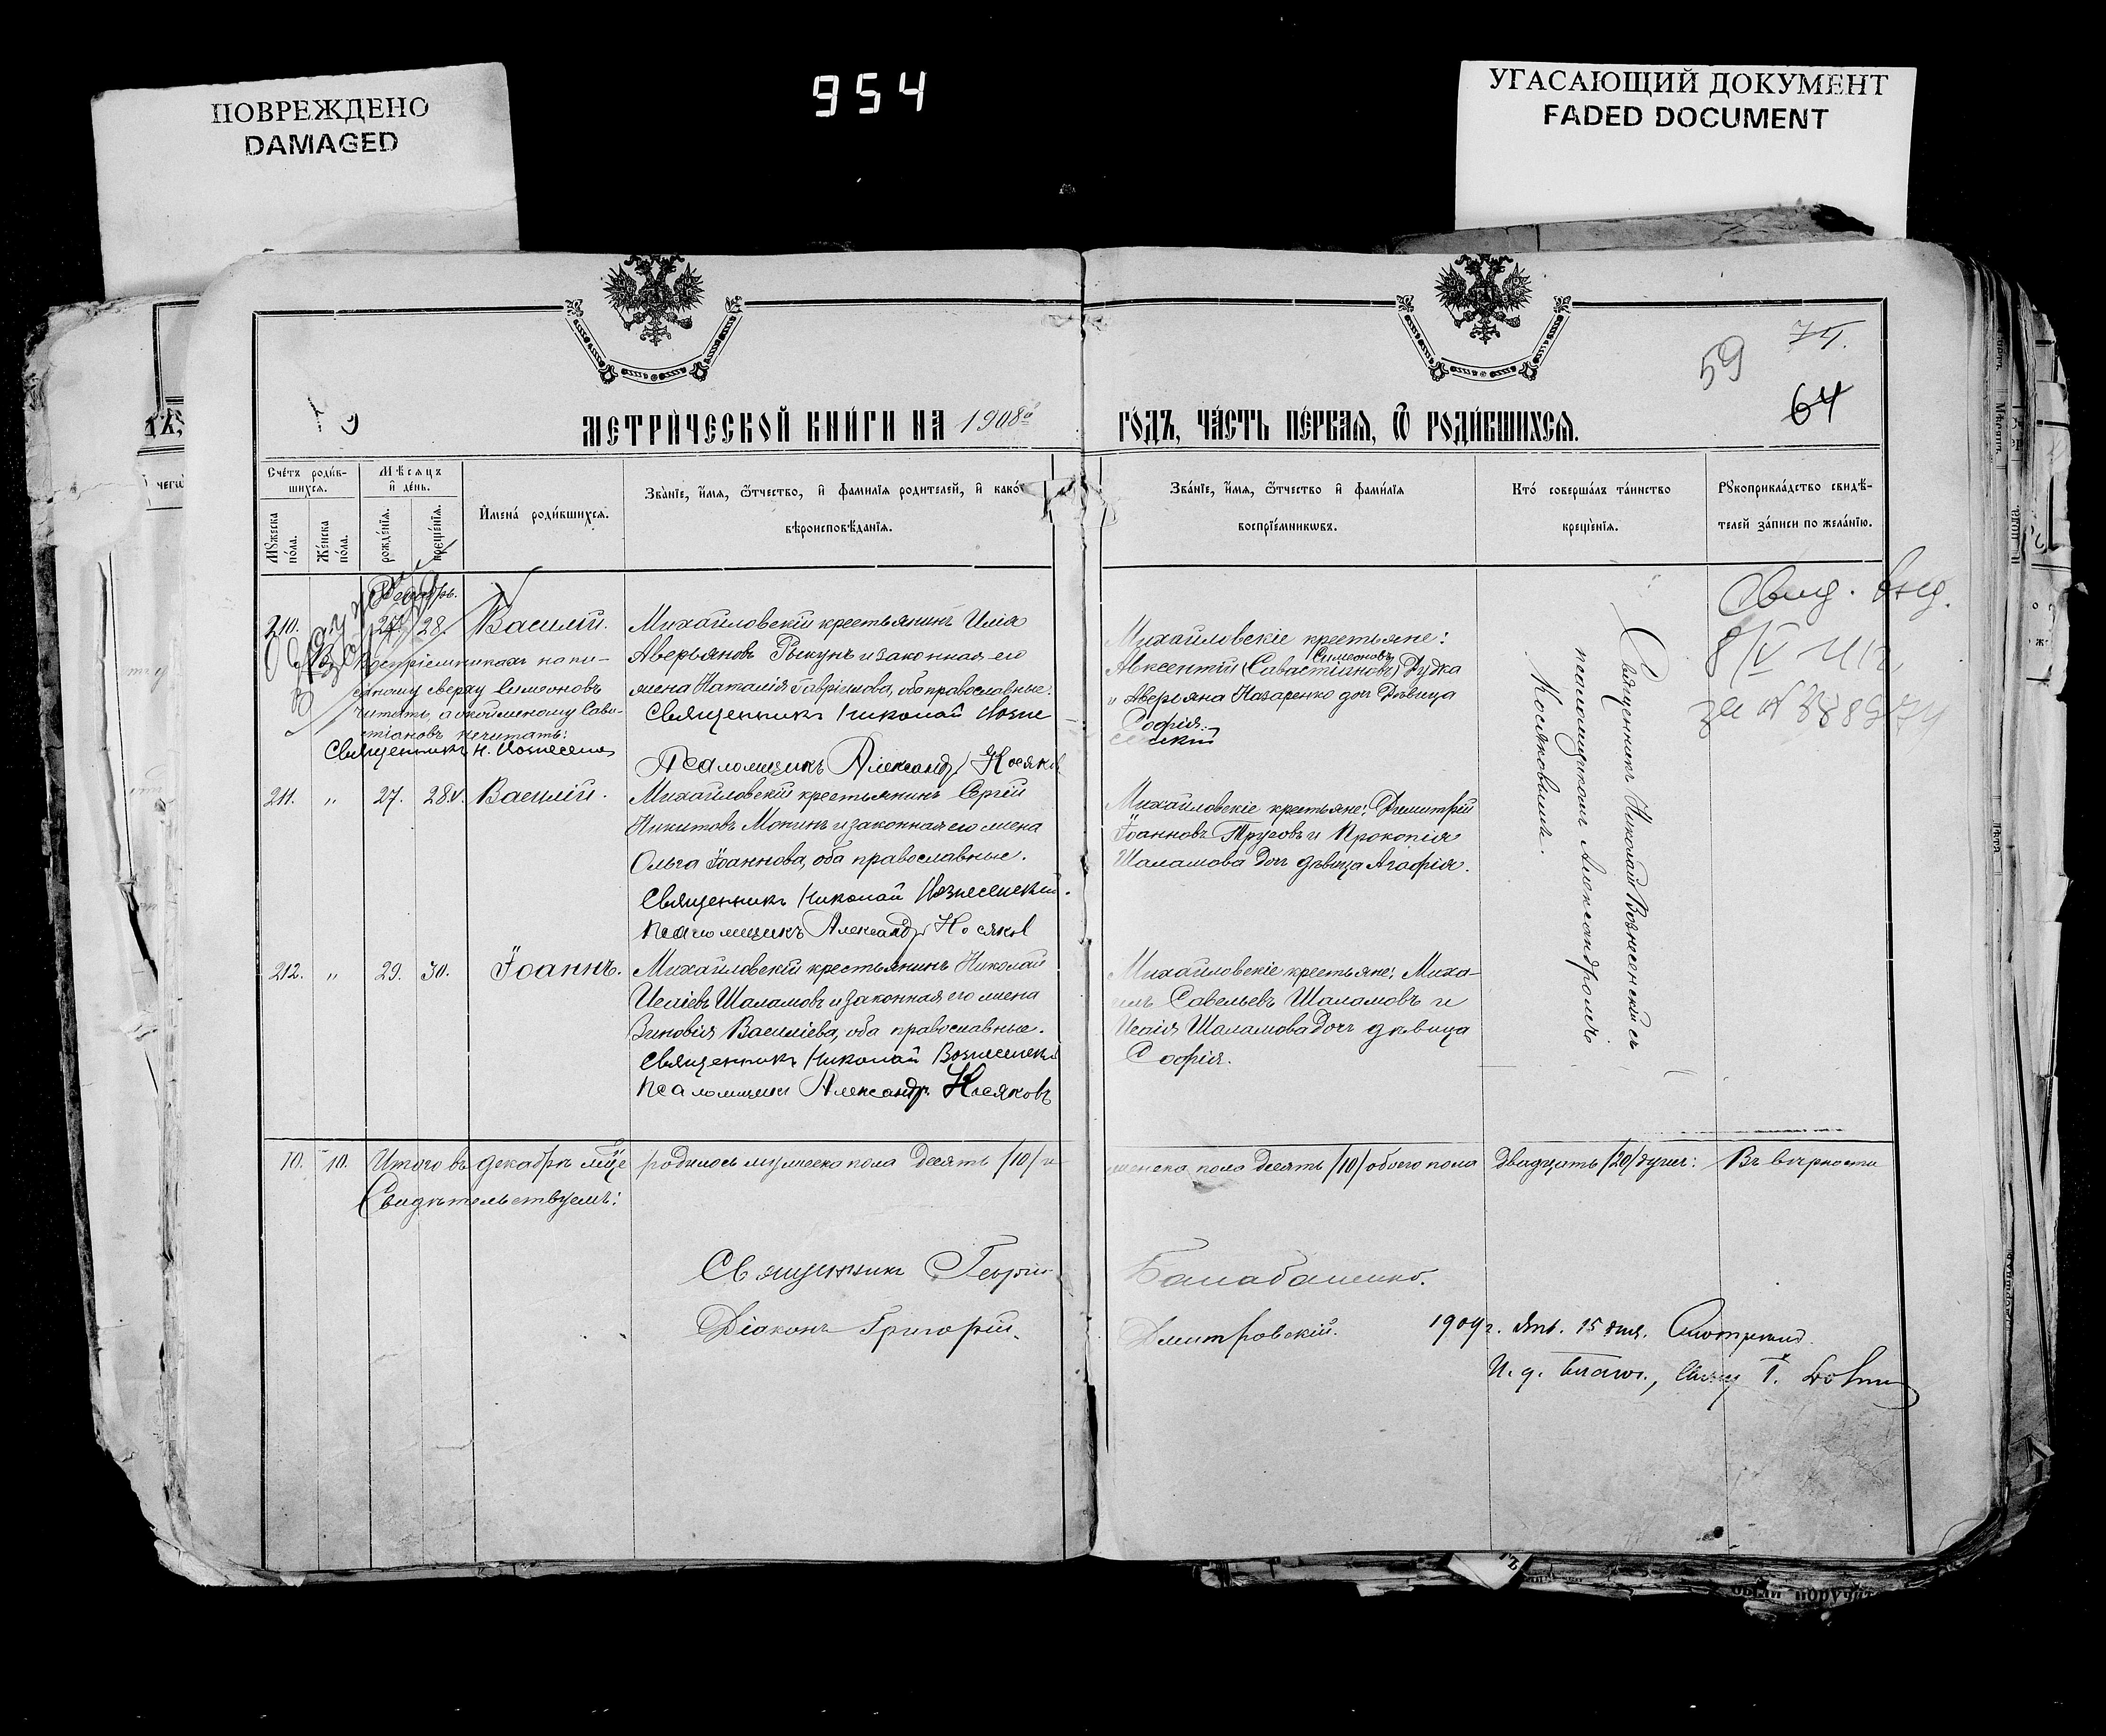 ПОВРЕЖДЕНО
DAMAGED
954
УГАСАЮЩИЙ ДОКУМЕНТ
FADED DOCUMENT
59
64
МЕТРИЧЕСКОЙ КНИГИ НА 1908й
ГОДЪ, ЧАСТЬ ПЕРВАЯ, Ѿ РОДИВШИХСЯ.
Счётъ родив-
шихся.
Мѣсяцъ
и день.
Мужеска
пола.
Женска
пола.
рожденія.
крещенія.
Имена родившихся.
Званіе, имя, ѿтчество, и фамилія родителей, и какой
вѣроисповѣданія.
Званіе, имя, ѿтчество и фамилія
воспріемниковъ.
Кто совершалъ таинство
крещенія.
Рукоприкладство свидѣ-
телей записи по желанію.
Декабрь.
210. 27 28. Василій.
Михайловскій крестьянинъ Илія
Аверьяновъ Рыкунъ и законная его
жена Наталія Гавріилова, оба православные.
Священникъ Николай Возне
сенскій
Псаломщикъ Александръ Косяковъ
воспріемникахъ напи-
санному сверху Симеоновъ
читать, а
стіановъ не читать:
Священникъ Н. Вознесенс
Михайловскіе крестьяне:
Симеоновъ
Авксентій (Савастіановъ) Дудка
и Аверьяна Назаренко доч дѣвица
Софія.
Священникъ Николай Вознесенскій съ
псаломщикомъ Александромъ
Косяковымъ.
Свид. выд.
8/V
за №
211. " 27. 28. Василій.
Михайловскій крестьянинъ Сергій
Никитовъ Мокинъ и законная его жена
Ольга Іоаннова, оба православные.
Священникъ Николай Вознесенскій.
Псаломщикъ Александръ Косяков
Михайловскіе крестьяне: Димитрій
Іоанновъ Трусовъ и Прокопія
Шаламова доч дѣвица Агафія.
212. " 29. 30. Іоаннъ.
Михайловскій крестьянинъ Николай
Исаіевъ Шаламовъ и законная его жена
Зиновія Василіева, оба православные.
Священникъ Николай Вознесенскій
Псаломщикъ Александръ Косяковъ
Михайловскіе крестьяне: Миха-
илъ Савельевъ Шаламовъ и
Исаія Шаламова доч дѣвица
Софія.
10. 10. Итого въ декабрѣ мцѣ родилось мужеска пола десять /10/ и женска пола десять /10/ обоего пола двадцать /20/ душъ: Въ вѣрности
Свидѣтельствуемъ:
Священникъ Георгій Балабаненко.
Діаконъ Григорій Дмитровскій.
1909 г. Янв. 15 дня. Смотрѣлъ
И. д. благоч., Свящ І.